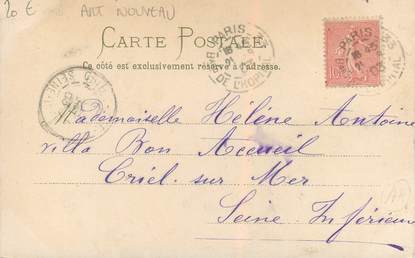 20 € ART NOUVEAU
CARTE POSTALE
Ce côté est exclusivement réservé à l'adresse.
PARIS
DE L'HOPITAL
PARIS
10
Mademoiselle Hélène Antoine
villa Bon Accueil
Criel sur Mer
Seine Inférieure